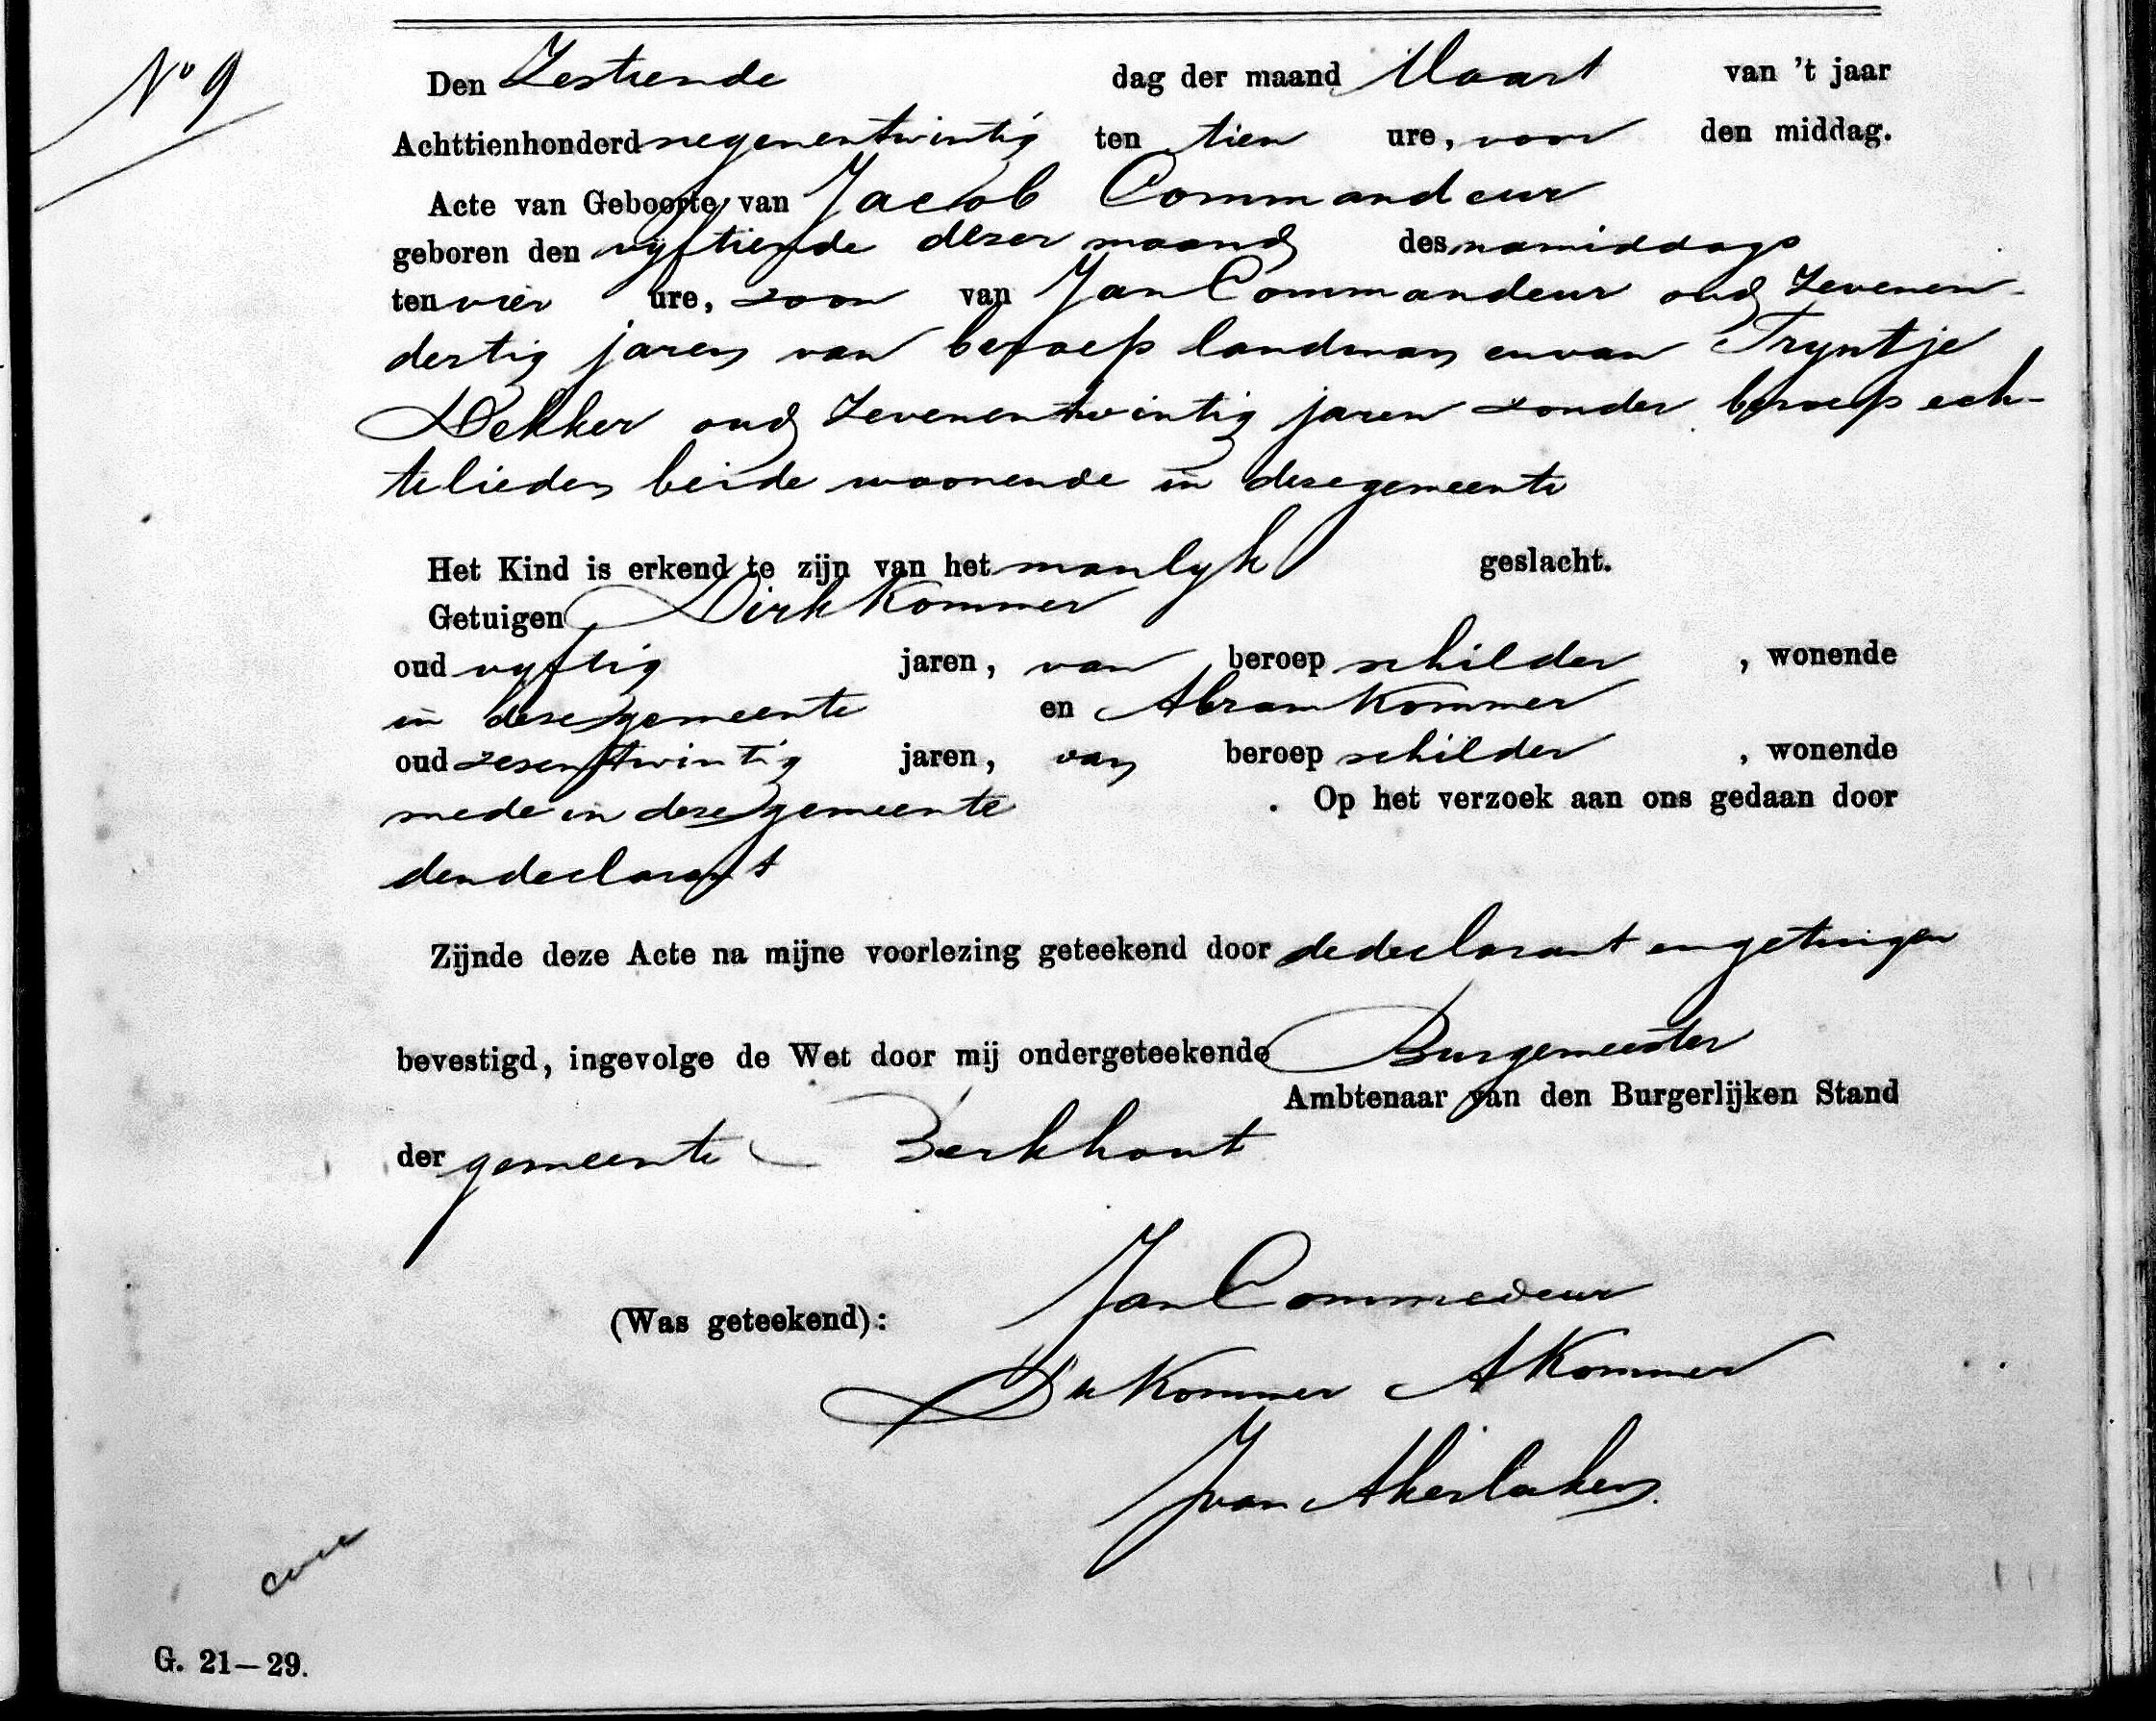 No 9
Den Zestiende dag der maand Maart van 't jaar
Achttienhonderd negenentwintig ten tien ure, voor den middag.
Acte van Geboorte van Jacob Commandeur
geboren den vyftiende dezer maand des namiddags
ten vier ure, zoon van Jan Commandeur oud Zevenen-
dertig jaren van beroep landman en van Tryntje
Dekker oud Zevenentwintig jaren zonder beroep ech-
telieden beide woonende in deze gemeente
Het Kind is erkend te zijn van het manlyk geslacht.
Getuigen Dirk Kommer
oud vyftig jaren, van beroep schilder, wonende
in deze gemeente en Abram Kommer
oud zesentwintig jaren, van beroep schilder, wonende
mede in deze gemeente. Op het verzoek aan ons gedaan door
den declarant
Zijnde deze Acte na mijne voorlezing geteekend door de declarant en getuigen
bevestigd, ingevolge de Wet door mij ondergeteekende Burgemeester
Ambtenaar van den Burgerlijken Stand
der gemeente Berkhout
(Was geteekend): Jan Commedeur
Dk Kommer A Kommer
J van Akerlaken.
G. 21—29.